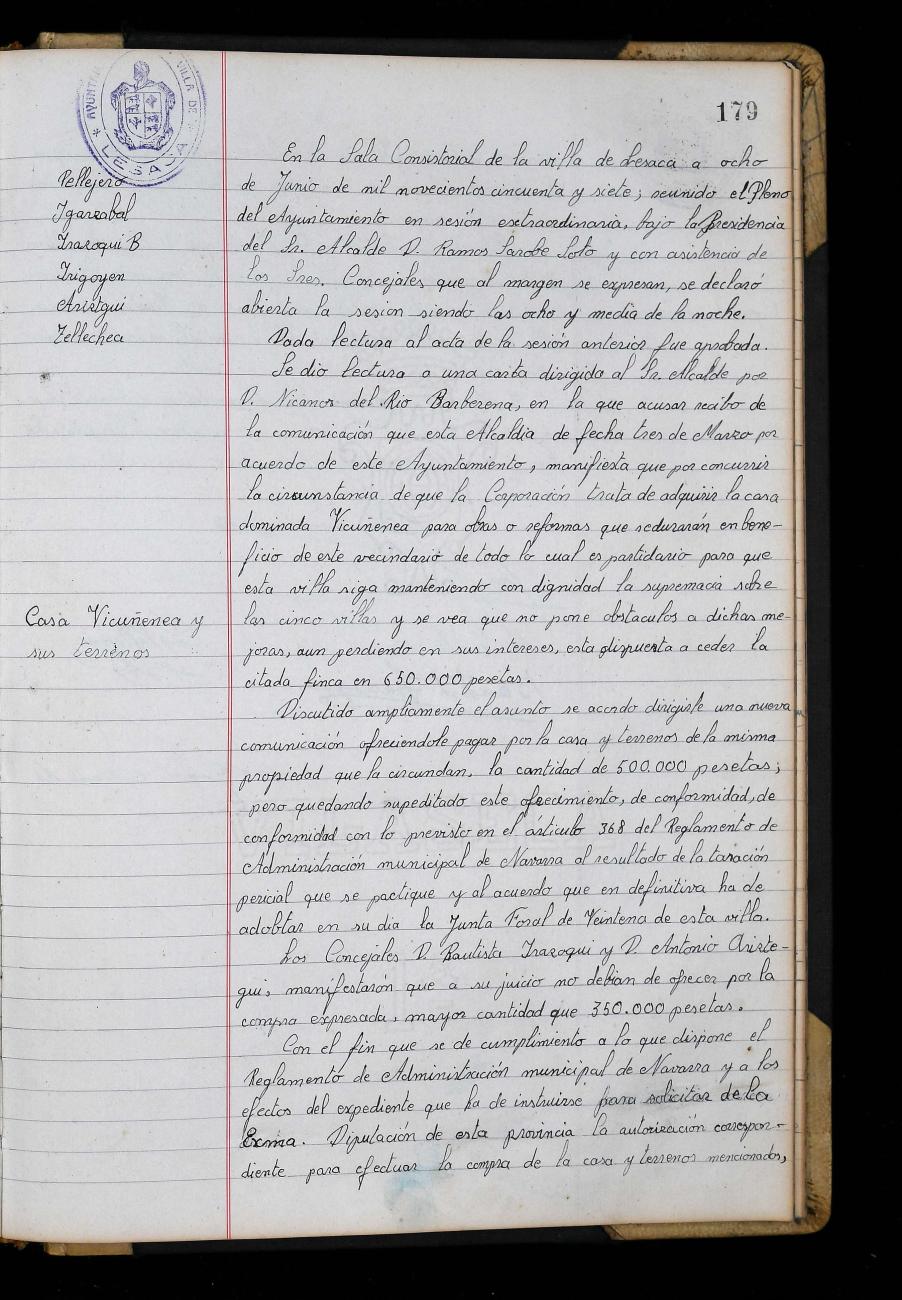 179
AYUNTA VILLA DE
* LESACA *
Pellejero
Igarzabal
Irazoqui B
Irigoyen
Ariztgui
Tellechea
En la Sala Consistorial de la villa de Lesaca a ocho
de Junio de nil novecientos cincuenta y siete; reunido el Pleno
del Ayuntamiento en sesión esctraordinaria, bajo la Presidencia
del Sr. Alcalde D. Ramos Sarobe Soto y con asistencia de
los Sres. Concejales que al margen se expresan, se declaró
abierta la sesion siendo las ocho y media de la noche.
Dada lectura al acta de la sesión anterior fue aprobada.
Se dio lectura a una carta dirigida al Sr. Alcalde por
D. Nicanor del Rio Barberena, en la que acusar recibo de
la comunicación que esta Alcaldia de fecha tres de Marzo por
acuerdo de este Ayuntamiento, manifiesta que por concurrir
la circunstancia de que la Corporación trata de adquirir la casa
dominada Vicuñenea para obras o reformas que redurarán en bene-
ficio de este vecindario de todo lo cual es partidario para que
esta villa siga manteniendo con dignidad la supremacia sobre
Casa Vicuñenea y
sus terrenos
las cinco villas y se vea que no pone obstaculos a dichas me-
joras, aun perdiendo en sus intereses, esta dispuesta a ceder la
citada finca en 650.000 pesetas.
Discutido ampliamente el asunto se acordo dirigirle una nueva
comunicación ofreciendole pagar por la casa y terrenos de la misma
propiedad que la circundan, la cantidad de 500.000 pesetas;
pero quedando supeditado este ofrecimiento, de conformidad, de
conformidad con lo previsto en el árticulo 368 del Reglamento de
Administración municipal de Navarra al resultado de la tasación
pericial que se pactique y al acuerdo que en definitiva ha de
adobtar en su dia la Junta Foral de Veintena de esta villa.
Los Concejales D. Bautista Irazoqui y D. Antonio Arizte-
gui, manifestarón que a su juicio no debian de ofrecer por la
compra expresada, mayor cantidad que 350.000 pesetas.
Con el fin que se de cumplimiento a lo que dispone el
Reglamento de Administración municipal de Navarra y a los
efectos del expediente que ha de instruirse para solicitar de la
Exma. Diputación de esta provincia la autorización correspon-
diente para efectuar la compra de la casa y terrenos mencionados,